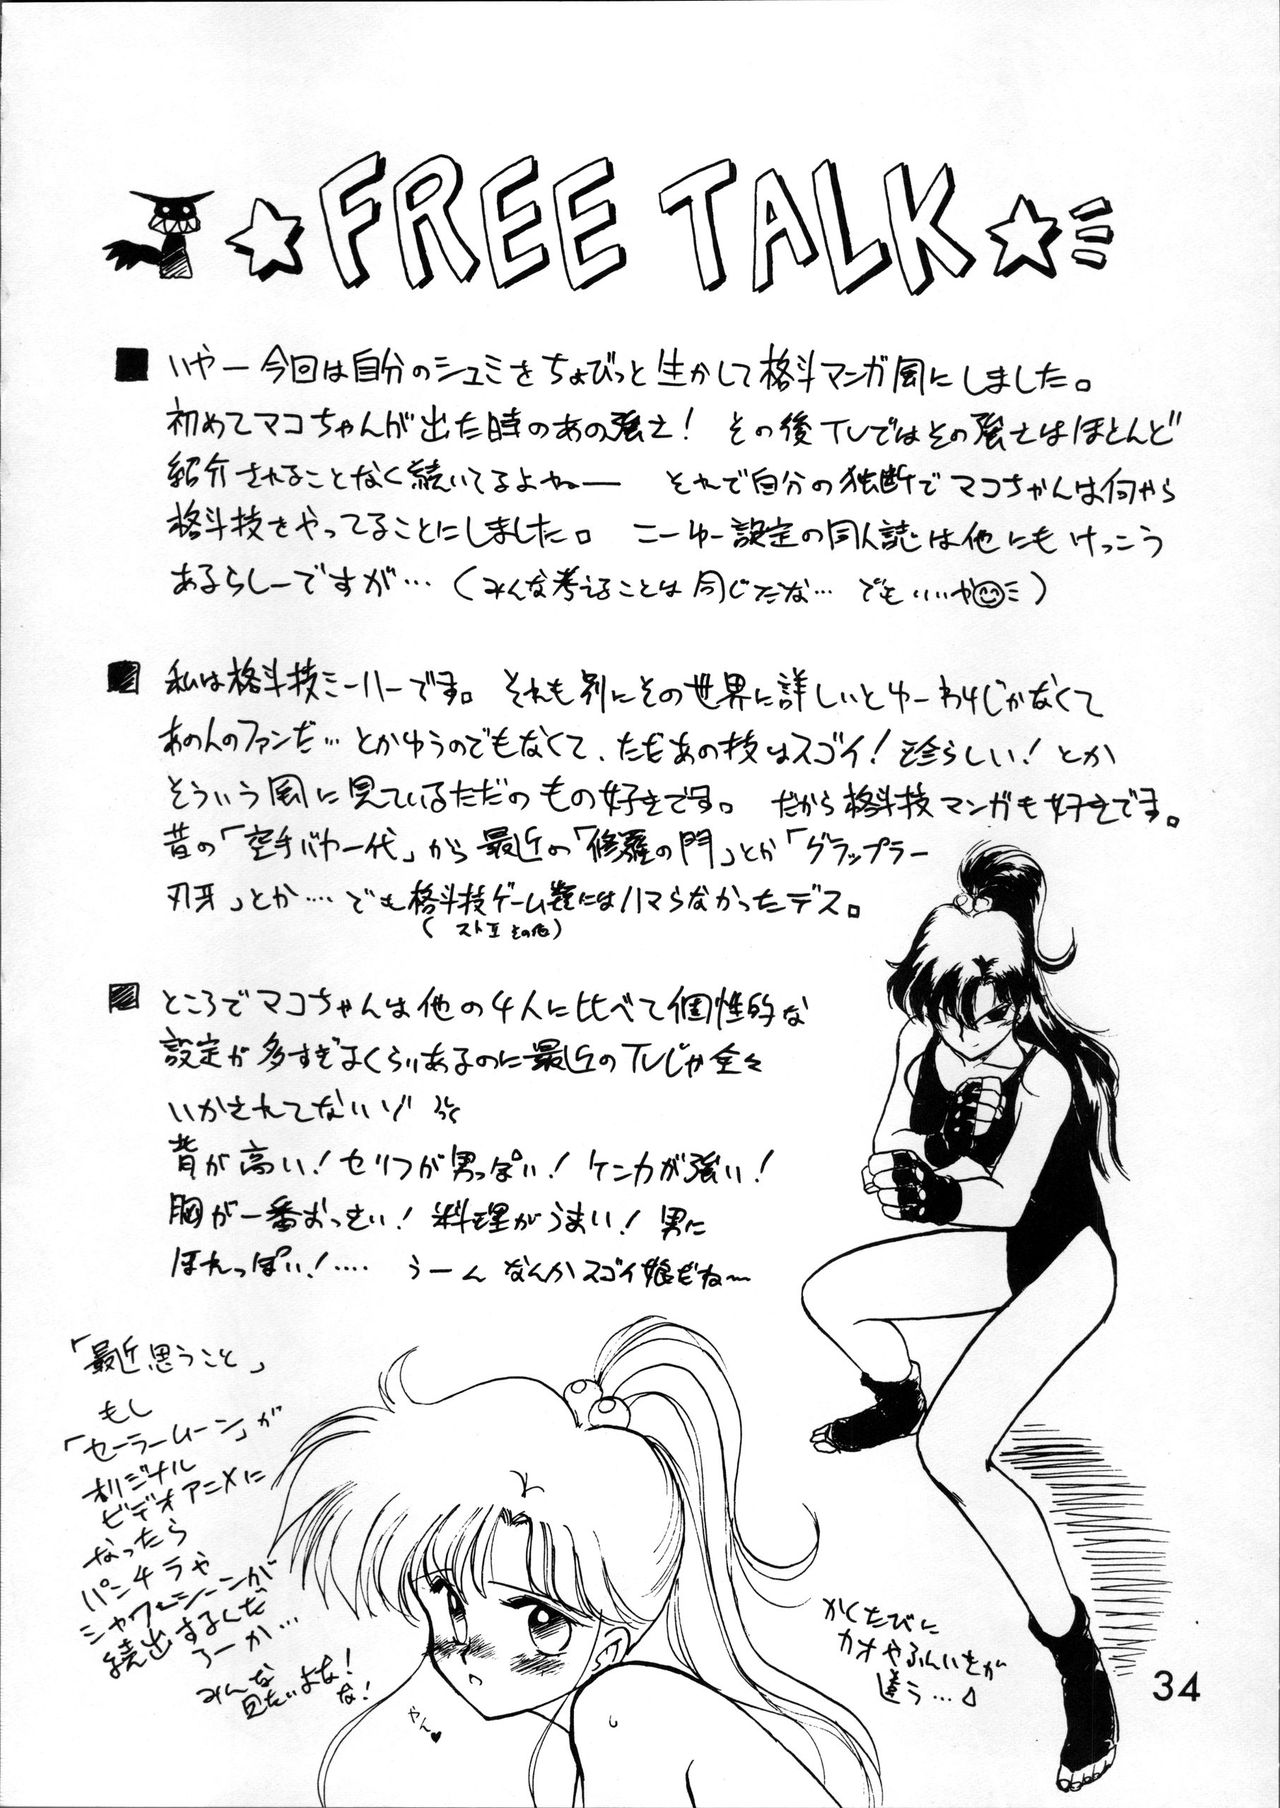 ☆FREE TALK☆
■ いやー今回は自分のシュミをちょびっと生かして格斗マンガ風にしました。
初めてマコちゃんが出た時のあの強さ！ その後TVではその強さはほとんど
紹介されることなく続いてるよねー それで自分の独断でマコちゃんは何やら
格斗技をやってることにしました。 こーゆー設定の同人誌は他にもけっこう
あるらしーですが…（みんな考えることは同じだな… でもいいや）
■ 私は格斗技ミーハーです。 それも別にその世界に詳しいとゆーわけじゃなくて
あの人のファンだ…とかゆうのでもなくて、ただあの技はスゴイ！珍らしい！とか
そういう風に見ているただのもの好きです。 だから格斗技マンガも好きです。
昔の「空手バカ一代」から最近の「修羅の門」とか「グラップラー
刃牙」とか…でも格斗技ゲーム類にはハマらなかったデス。
（ストⅡ その他）
■ ところでマコちゃんは他の4人に比べて個性的な
設定が多すぎるくらいあるのに最近のTVじゃ全々
いかされてないゾ
背が高い！セリフが男っぽい！ケンカが強い！
胸が一番おっきい！料理がうまい！男に
ほれっぽい！…. うーん なんかスゴイ娘だね〜
「最近思うこと」
もし
「セーラームーン」が
オリジナル
ビデオアニメに
なったら
パンチラや
シャワーシーンが
続出するくだ
ろーか…
みんな
見たいよな！
な！
やん♥
かくたびに
カオやふんいきが
違う…
34